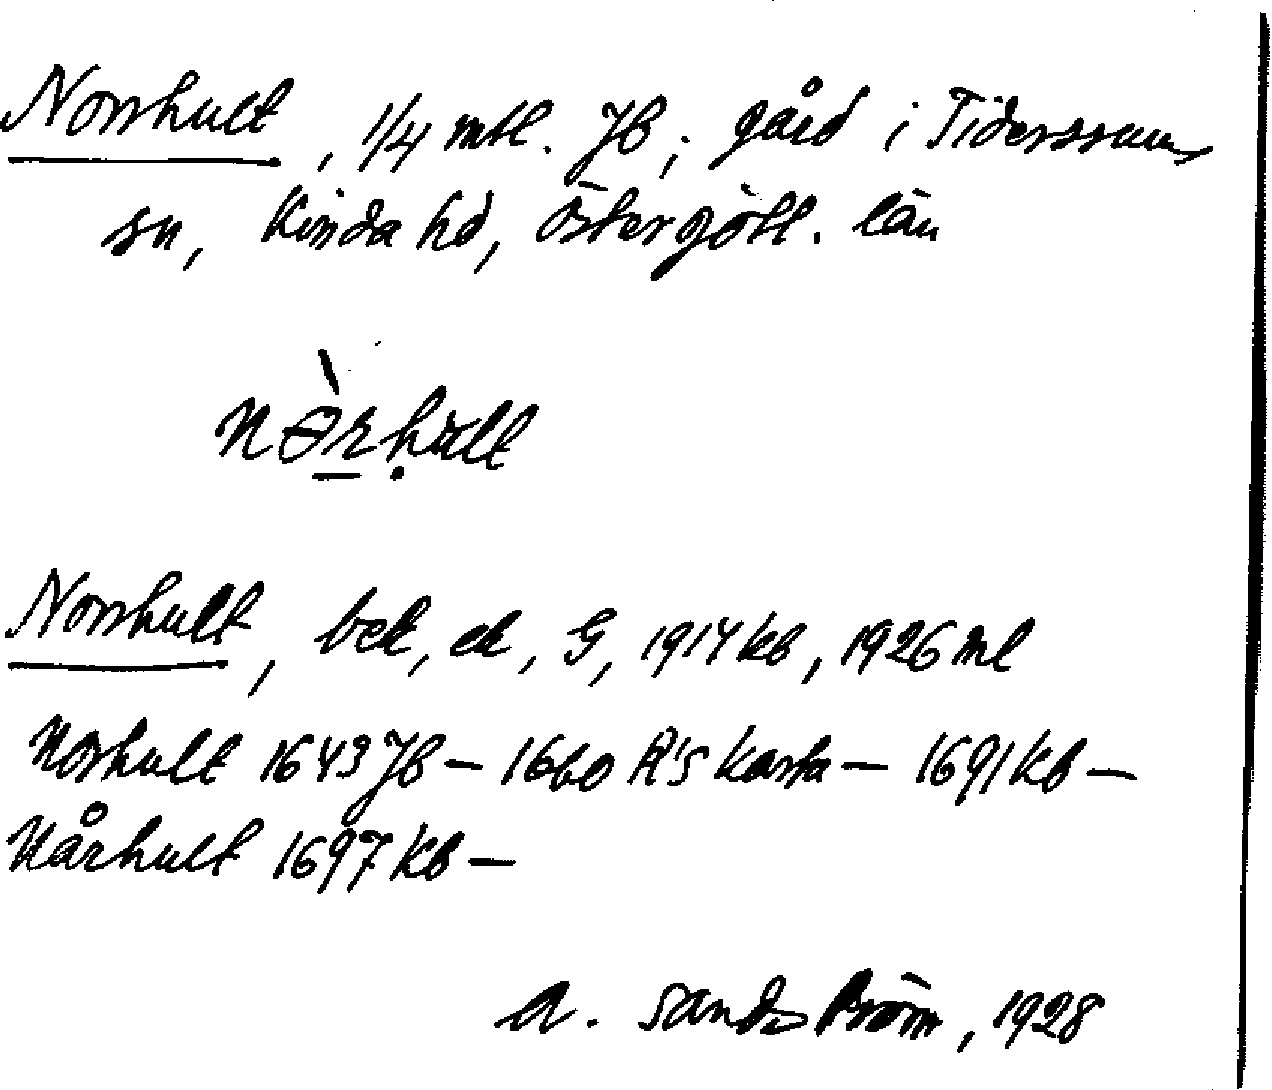 Norrhult, 1/4 mtl. Jb, gård i Tidersrums
sn, Kinda hd, Östergötl. län
nɵ̀rhult
Norrhult, bet, ek, G, 1914 kb, 1926 ml
Norhult 1643 Jb – 1660 R's karta – 1691 Kb –
Nårhult 1697 Kb –
A. Sandström, 1928